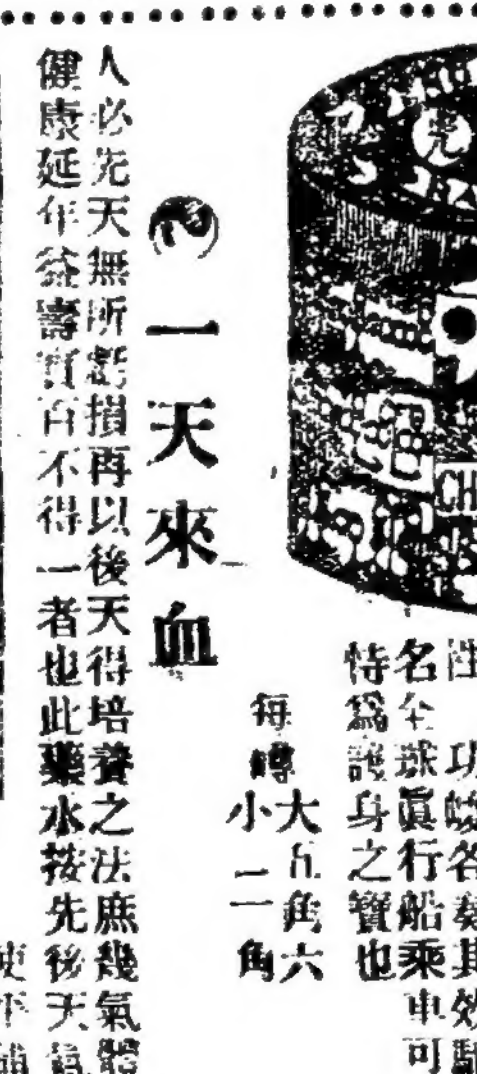 CH
性 功 各 其效
名全球眞行船乘車可
恃爲護身之寶也
每罇
大五角六
小二角
一天來血
人必先天無所虧損再以後天得培養之法庶幾氣體
健康延年益壽實百不得一者也此藥水按先後天
使